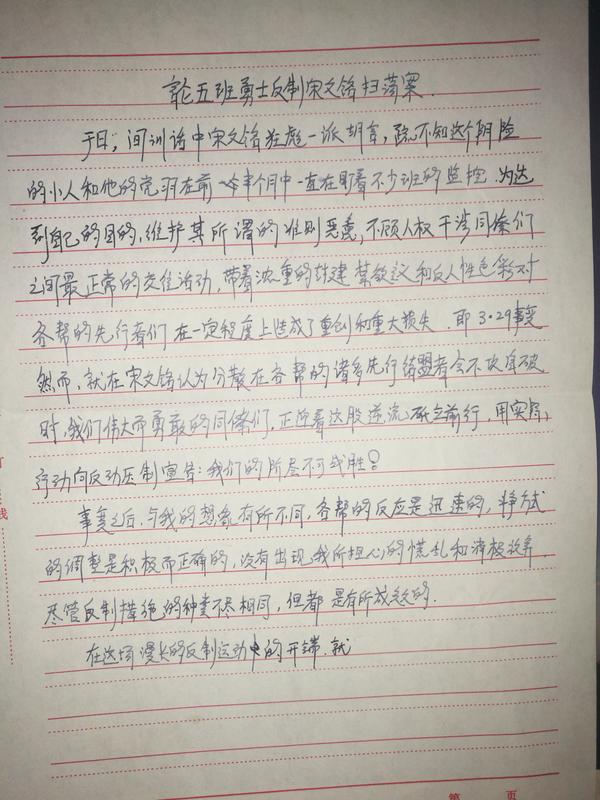 论五班勇士反制宋文铭扫荡案.
于日,间训话中宋文铭狂彪一派胡言,殊不知这个阴险
的小人和他的党羽在前 半个月中一直在盯着不少班的监控 为达
到自己的目的,维护其所谓的准则恶意,不顾人权干涉同僚们
之间最正常的交往活动,带着浓重的封建 教义和反人性色彩对
各帮的先行者们 在一定程度上造成了重创和重大损失 即3·29事变
然而,就在宋文铭认为分散在各帮的诸多先行结盟者会不攻自破
时,我们伟大而勇敢的同僚们,正迎着这股逆流砥立前行,用实际
行动向反动压制宣告:我们的阶层不可战胜!
事变之后,与我的想象有所不同,各帮的反应是迅速的,斗争方式
的调整是积极而正确的,没有出现我所担心的慌乱和消极放弃.
尽管反制措施的种类不尽相同,但都是有所成效的.
在这场漫长的反制运动中的开端.就
第 页
线